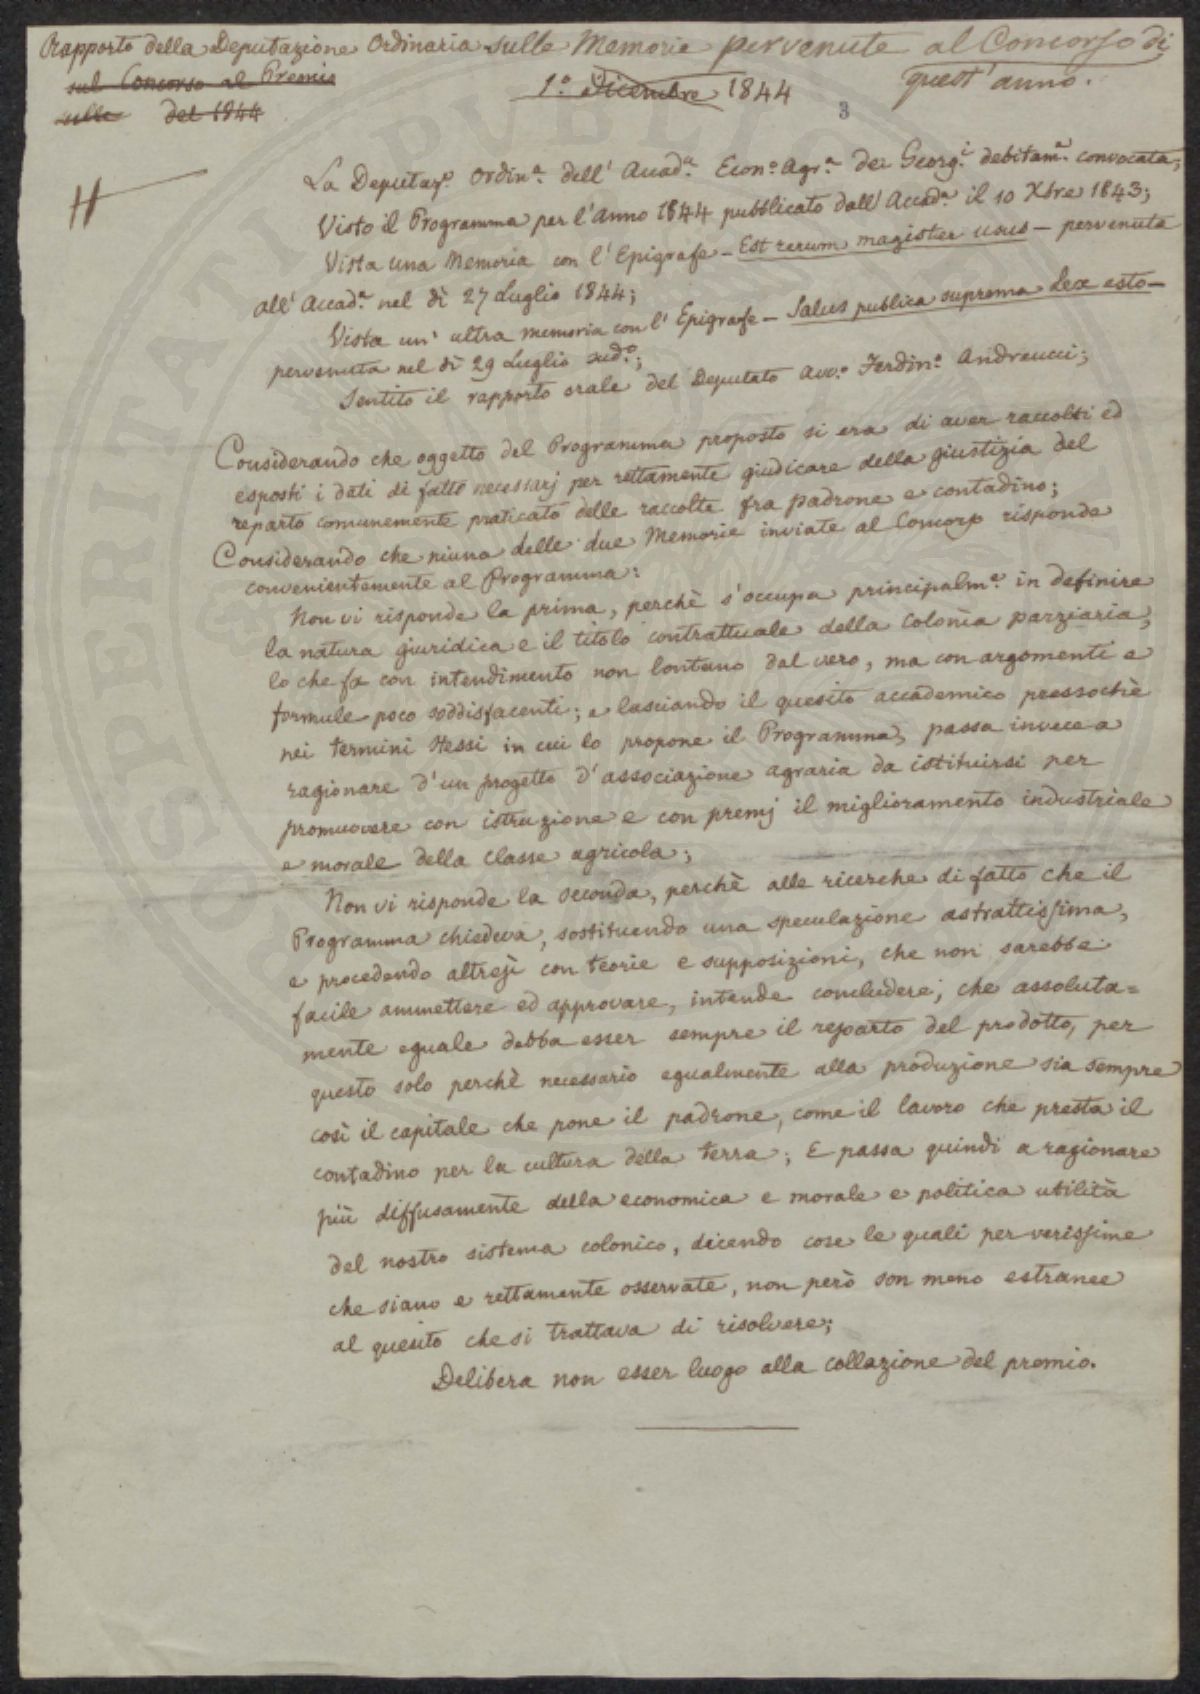 Rapporto della Deputazione Ordinaria sulle Memorie pervenute al Concorso di
quest'anno.
sul Concorso al Premio
sulle del 1844
1.º Dicembre 1844
3
La Deputaz.e Ordin.a dell' Accad.a Econ.o Agr.a dei Georg.i debitam.e convocata;
Visto il Programma per l'Anno 1844 pubblicato dall' Accad.a il 10 Xbre 1843;
Vista una Memoria con l'Epigrafe – Est rerum magister usus – pervenuta
all' Accad.a nel dì 27 Luglio 1844;
Vista un' altra memoria con l' Epigrafe – Salus publica suprema Lex esto –
pervenuta nel dì 29 Luglio sud.o;
Sentito il rapporto orale del Deputato Avv.o Ferdin.o Andreucci;
Considerando che oggetto del Programma proposto si era di aver raccolti ed
esposti i dati di fatto necessarj per rettamente giudicare della giustizia del
reparto comunemente praticato delle raccolte fra padrone e contadino;
Considerando che niuna delle due Memorie inviate al Concorso risponde
convenientemente al Programma:
Non vi risponde la prima, perchè s'occupa principalm.e in definire
la natura giuridica e il titolo contrattuale della Colonìa parziaria;
lo che fa con intendimento non lontano dal vero, ma con argomenti e
formule poco soddisfacenti; e lasciando il quesito accademico pressochè
nei termini stessi in cui lo propone il Programma, passa invece a
ragionare d'un progetto d'associazione agraria da istituirsi per
promuovere con istruzione e con premj il miglioramento industriale
e morale della classe agricola;
Non vi risponde la seconda, perchè alle ricerche di fatto che il
Programma chiedeva, sostituendo una speculazione astrattissima,
e procedendo altresì con teorie e supposizioni, che non sarebbe
facile ammettere ed approvare, intende concludere; che assoluta=
mente eguale debba esser sempre il reparto del prodotto, per
questo solo perchè necessario egualmente alla produzione sia sempre
così il capitale che pone il padrone, come il lavoro che presta il
contadino per la cultura della terra; E passa quindi a ragionare
più diffusamente della economica e morale e politica utilità
del nostro sistema colonico, dicendo cose le quali per verissime
che siano e rettamente osservate, non però son meno estranee
al quesito che si trattava di risolvere;
Delibera non esser luogo alla collazione del premio.